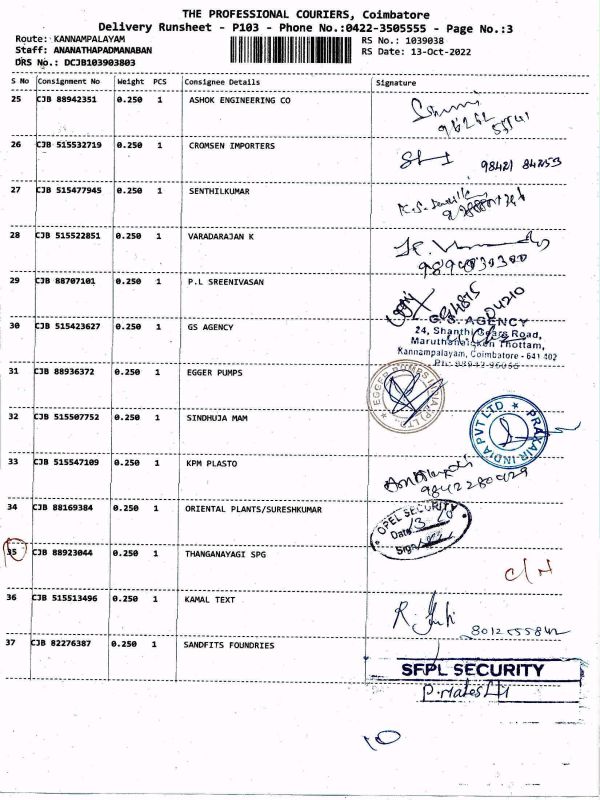 THE PROFESSIONAL COURIERS, Coimbatore
Delivery Runsheet - P103 - Phone No.:0422-3505555 - Page No.:3
Route: KANNAMPALAYAM RS No.: 1039038
Staff: ANANATHAPADMANABAN RS Date: 13-Oct-2022
DRS No.: DCJB103903803
S No Consignment No Weight PCS Consignee Details Signature
25 CJB 88942351 0.250 1 ASHOK ENGINEERING CO
26 CJB 515532719 0.250 1 CROMSEN IMPORTERS
27 CJB 515477945 0.250 1 SENTHILKUMAR
28 CJB 515522851 0.250 1 VARADARAJAN K
29 CJB 88707101 0.250 1 P.L SREENIVASAN
30 CJB 515423627 0.250 1 GS AGENCY
G.S. AGENCY
24, Shanthi Gears Road,
Maruthanaicken Thottam,
Kannampalayam, Coimbatore - 641 402
31 CJB 88936372 0.250 1 EGGER PUMPS
EGGER PUMPS INDIA PVT LTD
32 CJB 515507752 0.250 1 SINDHUJA MAM
PRAXAIR INDIA PVT LTD
33 CJB 515547109 0.250 1 KPM PLASTO
34 CJB 88169384 0.250 1 ORIENTAL PLANTS/SURESHKUMAR
OPEL SECURITY
Date
Sign
35 CJB 88923044 0.250 1 THANGANAYAGI SPG
C/N
36 CJB 515513496 0.250 1 KAMAL TEXT
37 CJB 82276387 0.250 1 SANDFITS FOUNDRIES
SFPL SECURITY
10